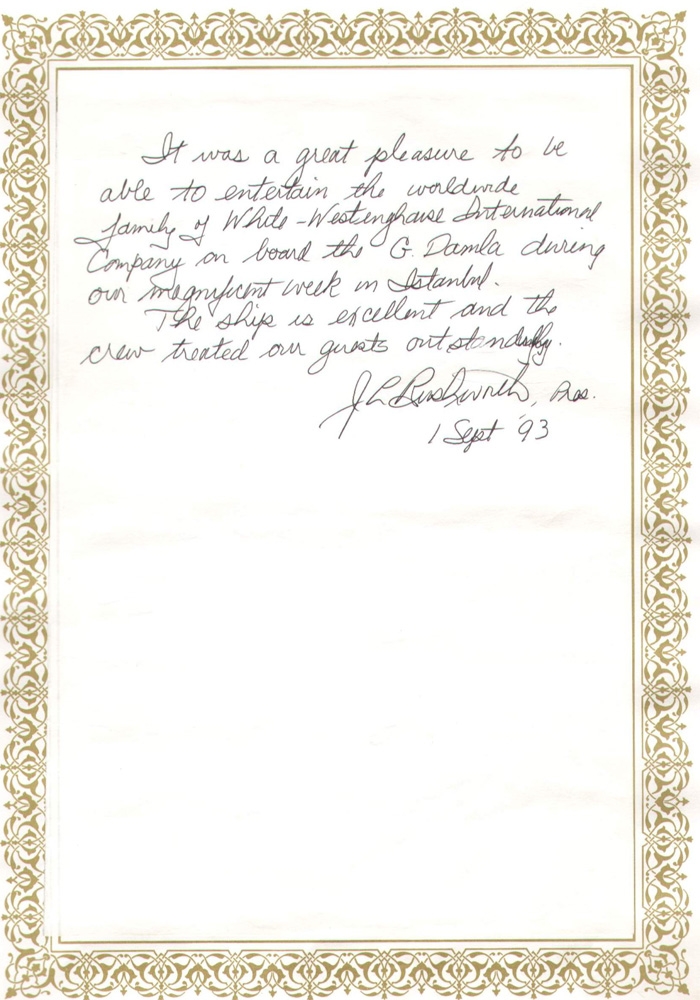 It was a great pleasure to be
able to entertain the worldwide
family of White-Westinghouse International
Company on board the G. Damla during
our magnificent week in Istanbul.
The ship is excellent and the
crew treated our guests outstandingly.
J L Rushworth, Pres.
1 Sept '93